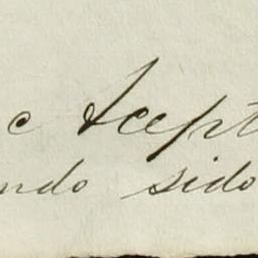 c Acept
ndo sido